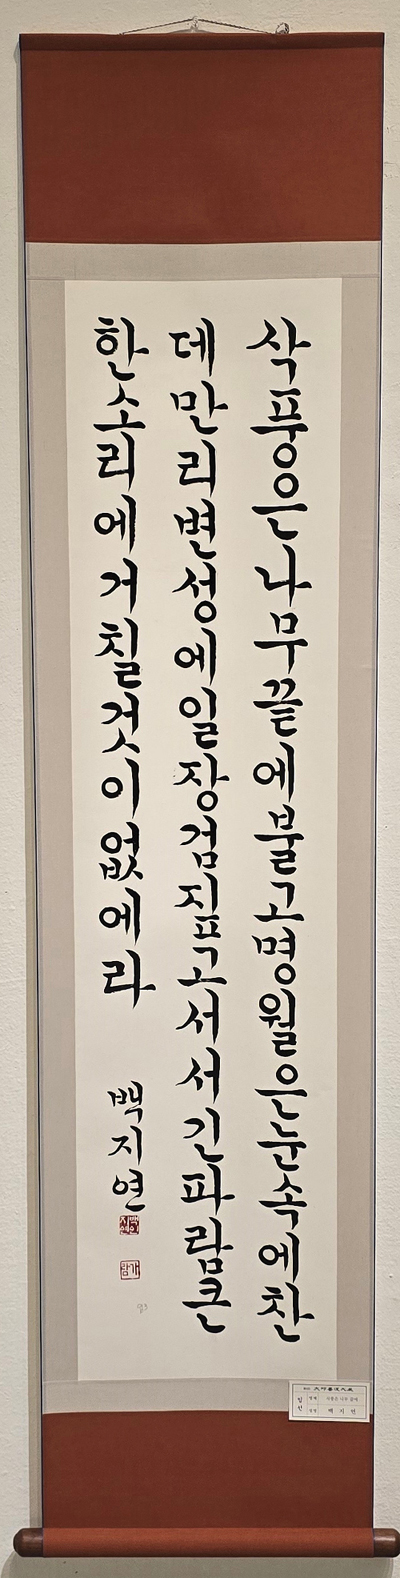 삭풍은나무끝에불고명월은눈속에찬
데만리변성에일장검짚고서서긴파람큰
한소리에거칠것이없에라
백지연